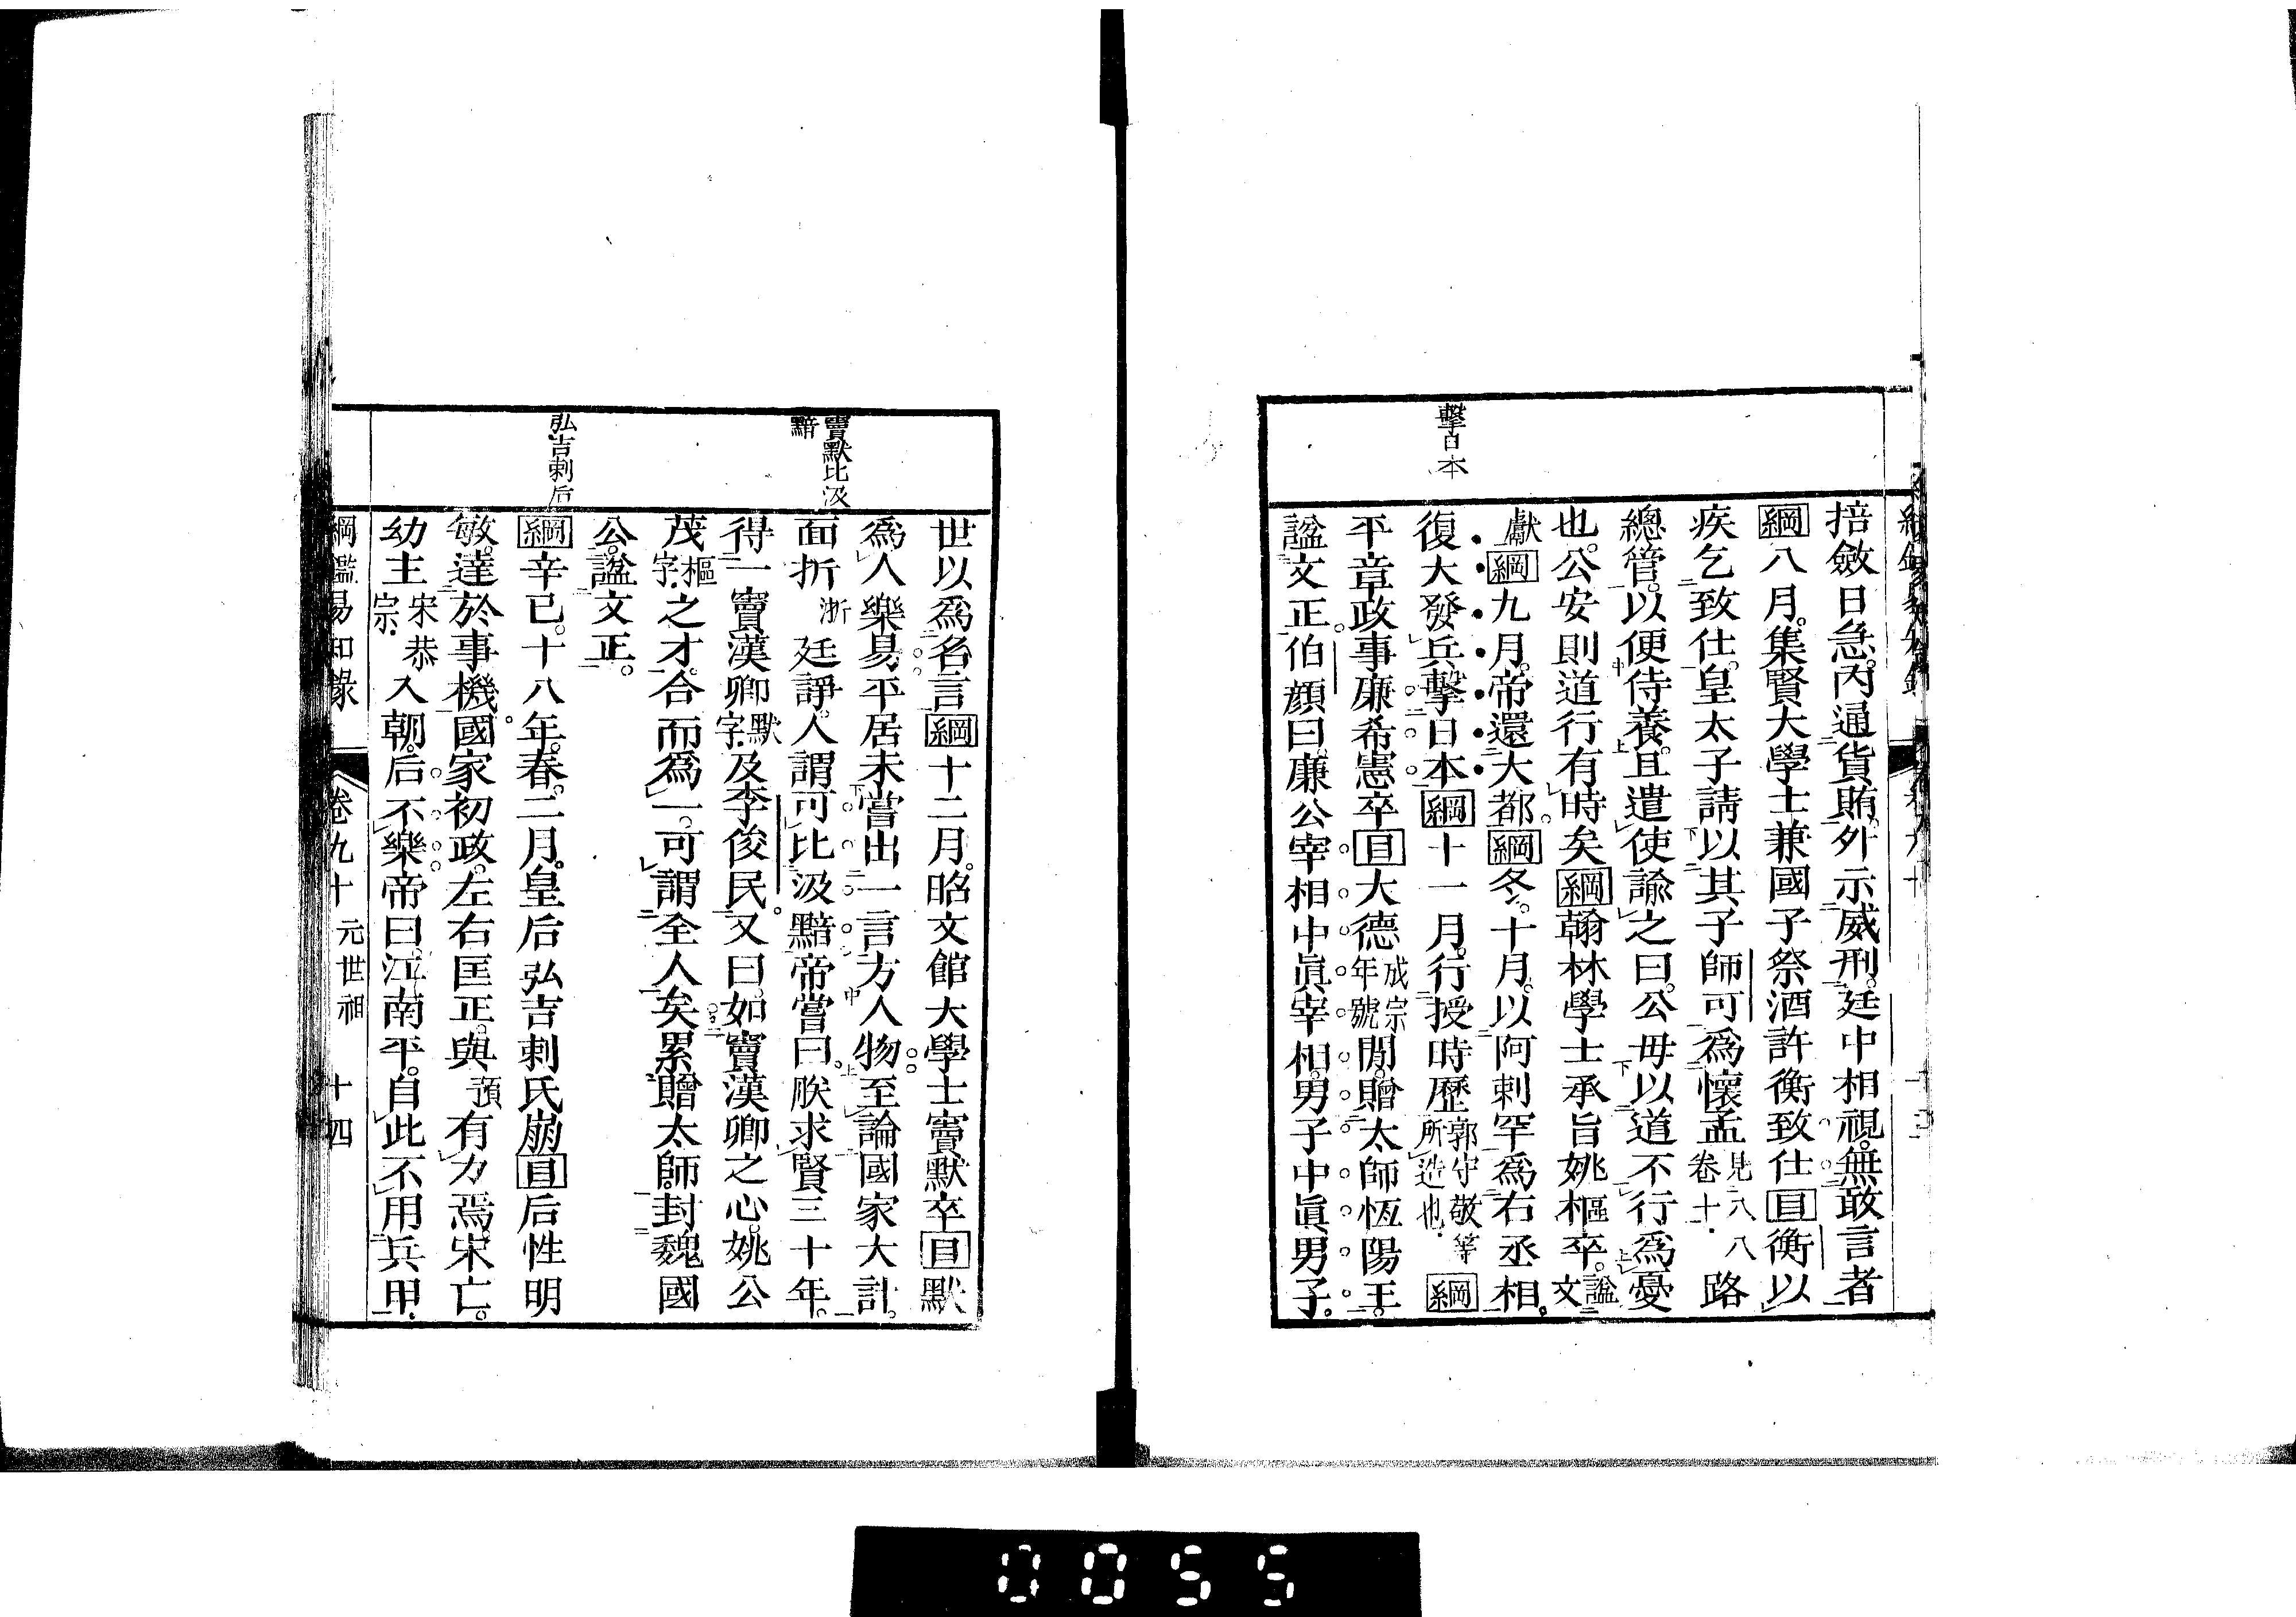 擊日本
掊斂日急。內通貨賄。外示威刑。廷中相視。無敢言者
綱八月。集賢大學士兼國子祭酒許衡致仕目衡以
疾乞致仕。皇太子請以其子師可爲懷孟見八八卷十路
總管。以便侍養。且遣使諭之曰。公毋以道不行爲憂
也。公安則道行有時矣綱翰林學士承旨姚樞卒。諡文
獻綱九月。帝還大都。綱冬。十月。以阿剌罕爲右丞相。
復大發兵擊日本綱十一月。行授時歷郭守敬等所造也綱
平章政事廉希憲卒目大德成宗年號閒。贈太師恆陽王。
諡文正。伯顏曰。廉公宰相中眞宰相。男子中眞男子。
竇默比汲黯
弘吉剌后
世以爲名言綱十二月。昭文館大學士竇默卒目默
爲人樂易。平居未嘗出一言方人物。至論國家大計。
面折浙廷諍。人謂可比汲黯。帝嘗曰。朕求賢三十年。
得一竇漢卿默字及李俊民。又曰。如竇漢卿之心。姚公
茂樞字之才。合而爲一。可謂全人矣。累贈太師。封魏國
公。諡文正。
綱辛巳。十八年。春。二月。皇后弘吉剌氏崩目后性明
敏。達於事機。國家初政。左右匡正。與預有力焉。宋亡。
幼主宋恭宗入朝。后不樂。帝曰。江南平。自此不用兵甲。
綱鑑易知錄 卷九十 元世祖 十四
0055